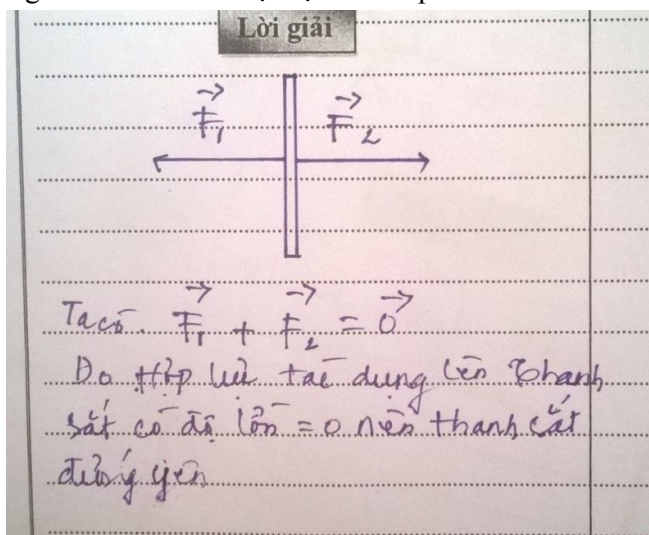 Lời giải
F₁ F₂
Ta có. F₁ + F₂ = 0
Do hợp lực tác dụng lên thanh
sắt có độ lớn = 0 nên thanh sắt
đứng yên